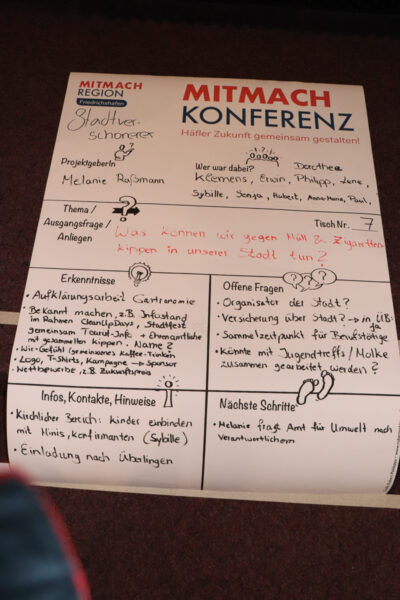 MITMACH
REGION
Friedrichshafen
MITMACH
KONFERENZ
Häfler Zukunft gemeinsam gestalten!
Stadtver-
schönerer
ProjektgeberIn
Melanie Raßmann
Wer war dabei? Dorothea
Klemens, Erwin, Philipp, Lene,
Sybille, Sonja, Hubert, Anna-Maria, Paul,
Thema /
Ausgangsfrage /
Anliegen
Tisch Nr. 7
Was können wir gegen Müll & Zigaretten-
kippen in unserer Stadt tun?
Erkenntnisse
• Aufklärungsarbeit Gastronomie
• Bekannt machen, z.B. Infostand
im Rahmen CleanUpDays, Stadtfest
gemeinsam + Ehrenamtliche
mit gesammelten Kippen. Name?
• Wir-Gefühl (gemeinsames Kaffee-Trinken
• Logo, T-Shirts, Kampagne → Sponsor
• Wettbewerbe, z.B. Zukunftspreis
Offene Fragen
• Organisator der Stadt?
• Versicherung über Stadt? → in ÜB:
ja
• Sammelzeitpunkt für Berufstätige
• Könnte mit Jugendtreffs / Molke
zusammen gearbeitet werden?
Infos, Kontakte, Hinweise
• Kirchlicher Bereich: Kinder einbinden
mit Minis, Konfirmanten (Sybille)
• Einladung nach Überlingen
Nächste Schritte
• Melanie fragt Amt für Umwelt nach
Verantwortlichem